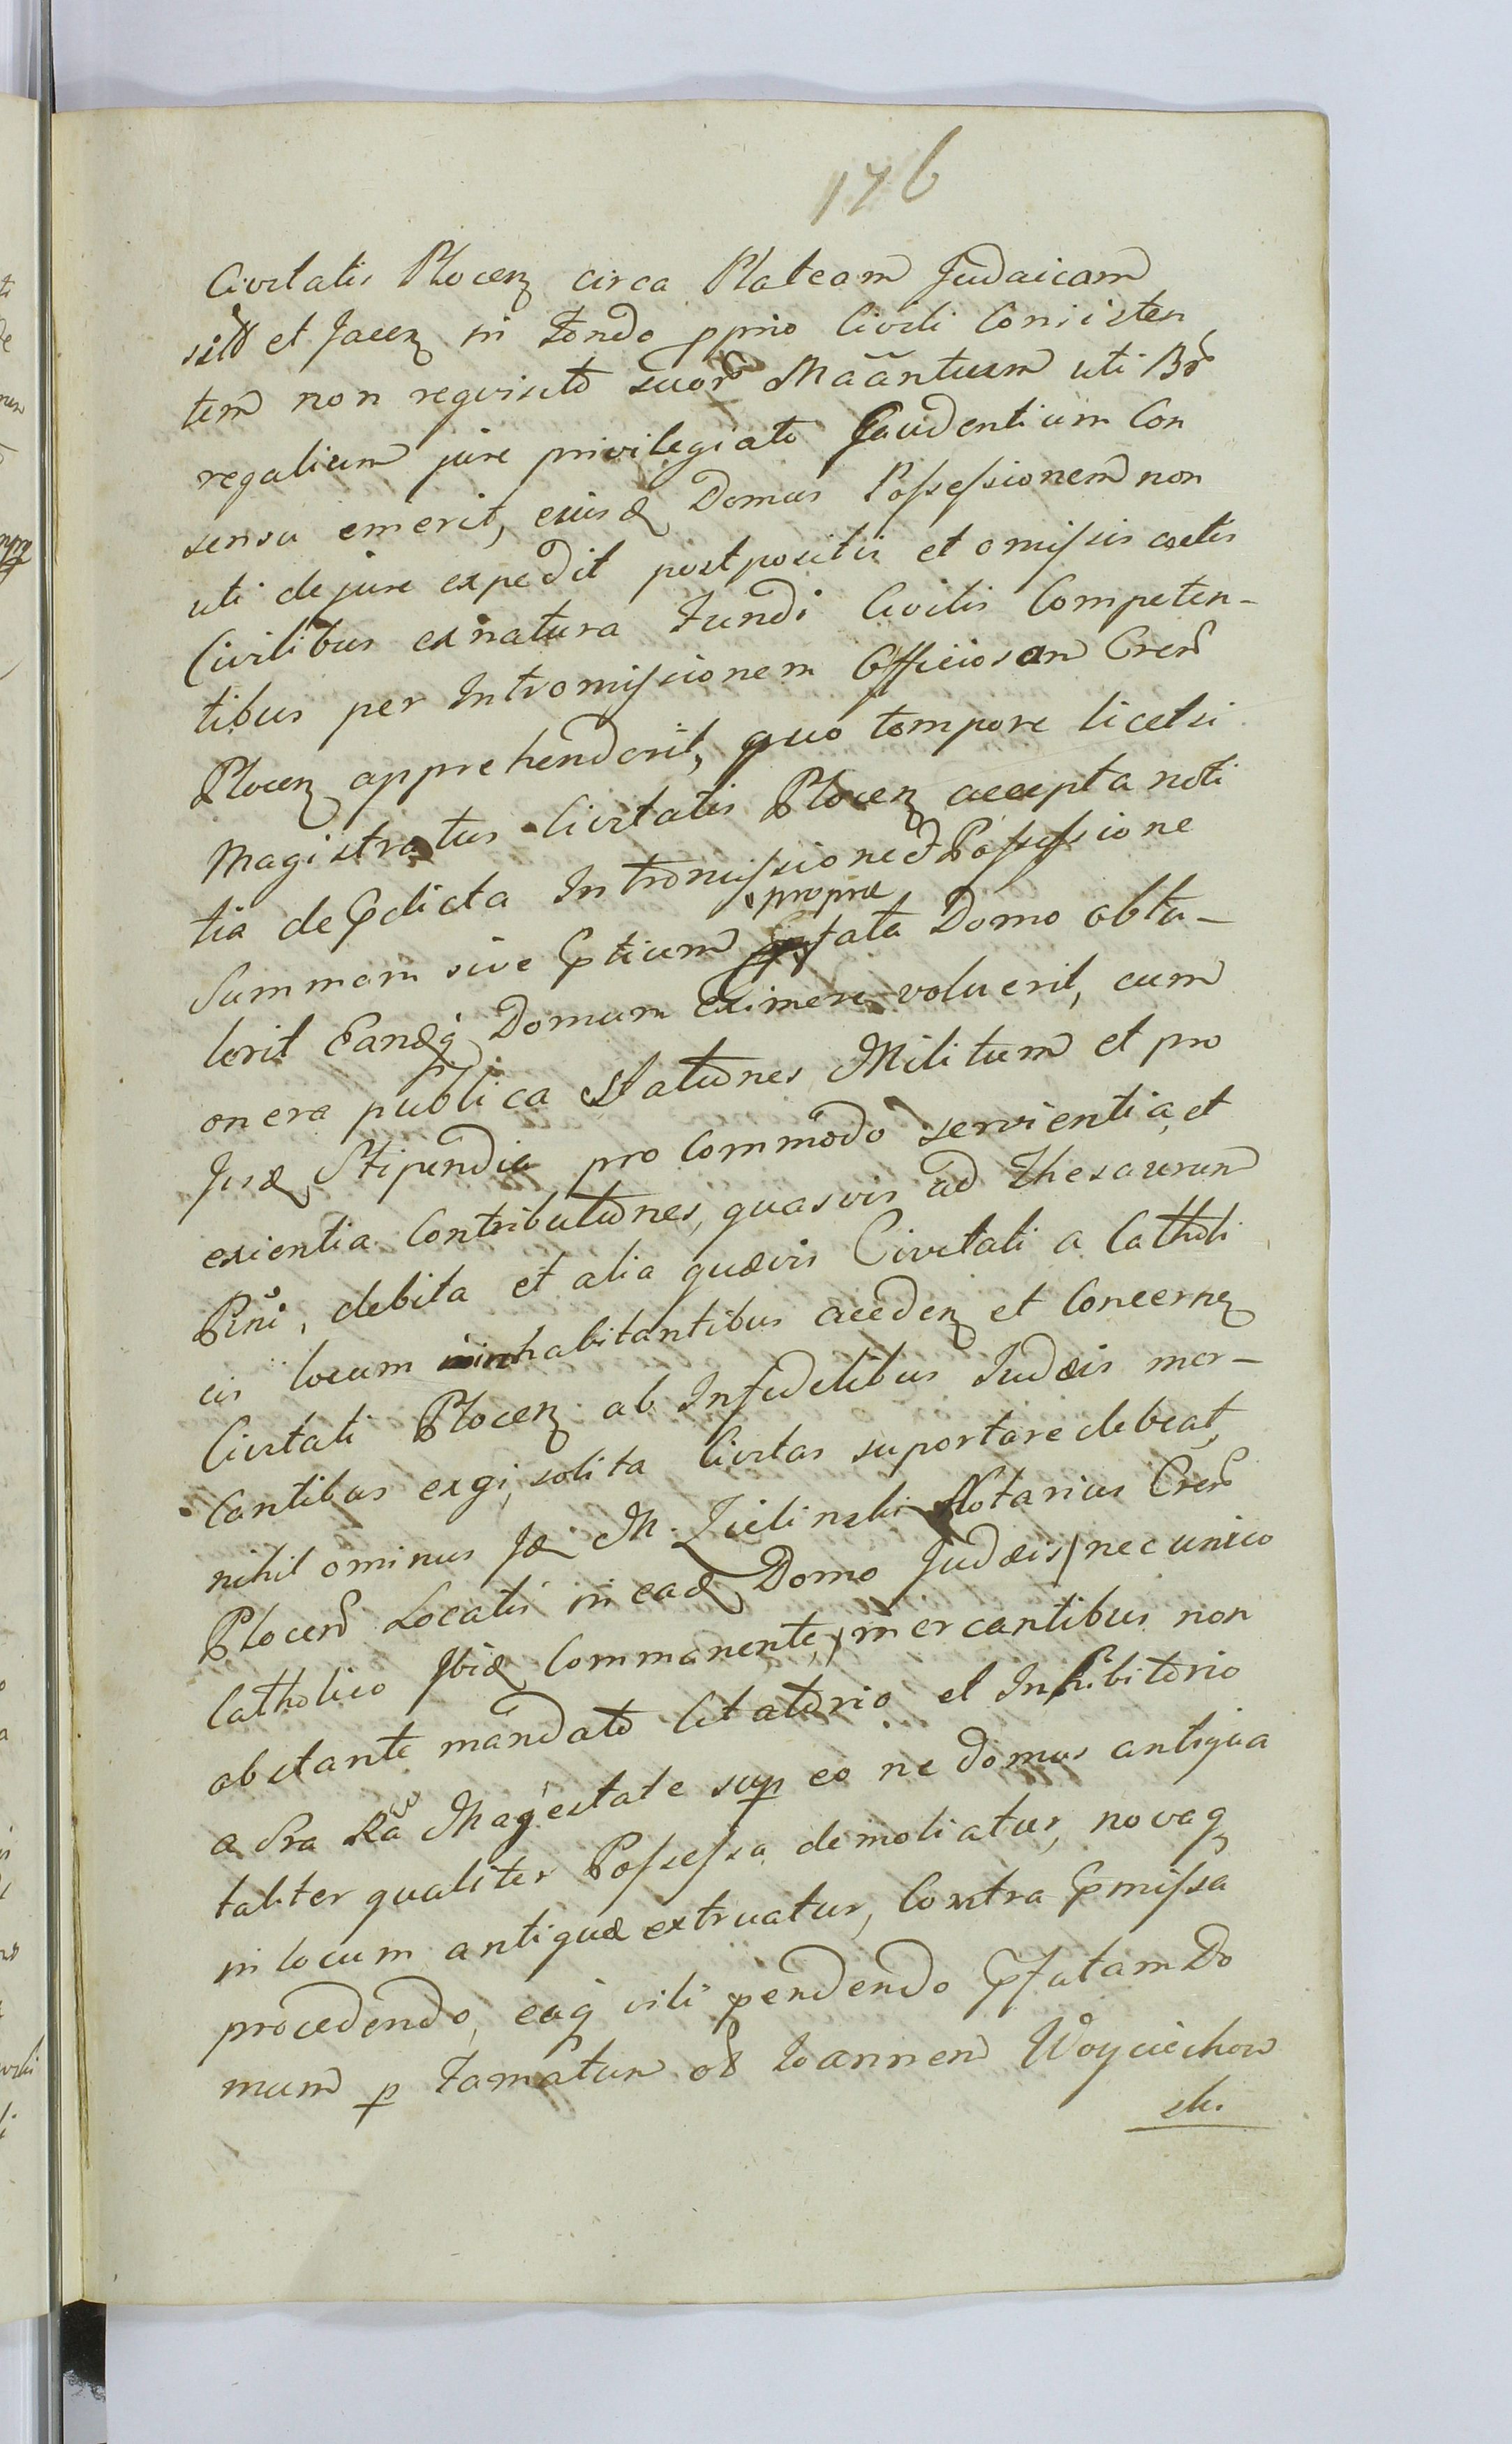 176
Civitatis Plocen circa Plateam Judaicam
sitã et Jacen in Fondo pprio Civili Consisten
tem non requisito suor Mããntium uti Br
regalium jure privilegiato Gaudentium Con
sensu emerit, eiusq Domus Possessionem non
uti de jure expedit postpositis et omissis actis
Civilibus ex natura Fundi Civilis Competen-
tibus per Intromissionem Officiosam Cren
Plocen apprehenderit, quo tempore licet si
Magistratus Civitatis Plocen accepta noti
tia de pdicta Intromissione et Possessione
propria
Summam sive ptium pfata Domo obtu-
lerit Eandq Domum Eximere voluerit, cum
onera publica Stationes Militum et pro
Jisq Stipendia pro Commodo servientia, et
exientia Contributiones, quasvis ad Thesaurum
Rni, debita et alia quævis Civitati a Catholi
cis locum inhabitantibus acceden et Concernen
Civitati Plocen ab Infidelibus Judæis mer-
Cantibus exgi, solita Civitas suportare debeat,
nihil ominus Jq M. Zielinski Notarius Cren
Plocen Locatis in eaq Domo Judæis/ nec unico
Catholico Ibiq Commanente,/ mercantibus non
obstante mandato Citatorio et Inhibitorio
a Sra Ra Magestate sup eo ne domus antiqua
taliter qualiter Possessa demoliatur, novaq
in locum antiquæ extruatur, Contra pmissa
procedendo, eaq vili pendendo pfatam Do
mum p Famatum ol Ioannem Woyciechow
ski.